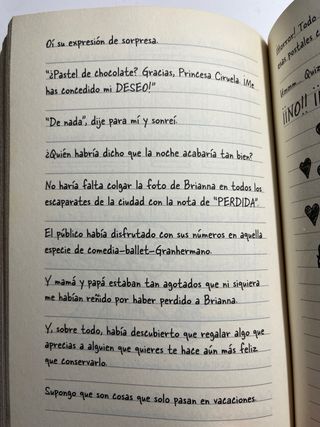 Oí su expresión de sorpresa.
"¿Pastel de chocolate? Gracias, Princesa Ciruela. ¡Me
has concedido mi DESEO!"
"De nada", dije para mí y sonreí.
¿Quién habría dicho que la noche acabaría tan bien?
No haría falta colgar la foto de Brianna en todos los
escaparates de la ciudad con la nota de "PERDIDA".
El público había disfrutado con sus números en aquella
especie de comedia-ballet-Granhermano.
Y mamá y papá estaban tan agotados que ni siquiera
me habían reñido por haber perdido a Brianna.
Y, sobre todo, había descubierto que regalar algo que
aprecias a alguien que quieres te hace aún más feliz
que conservarlo.
Supongo que son cosas que solo pasan en vacaciones.
¡Horror! Todo
postales c
Ummm... Quiz
¡¡NO!!